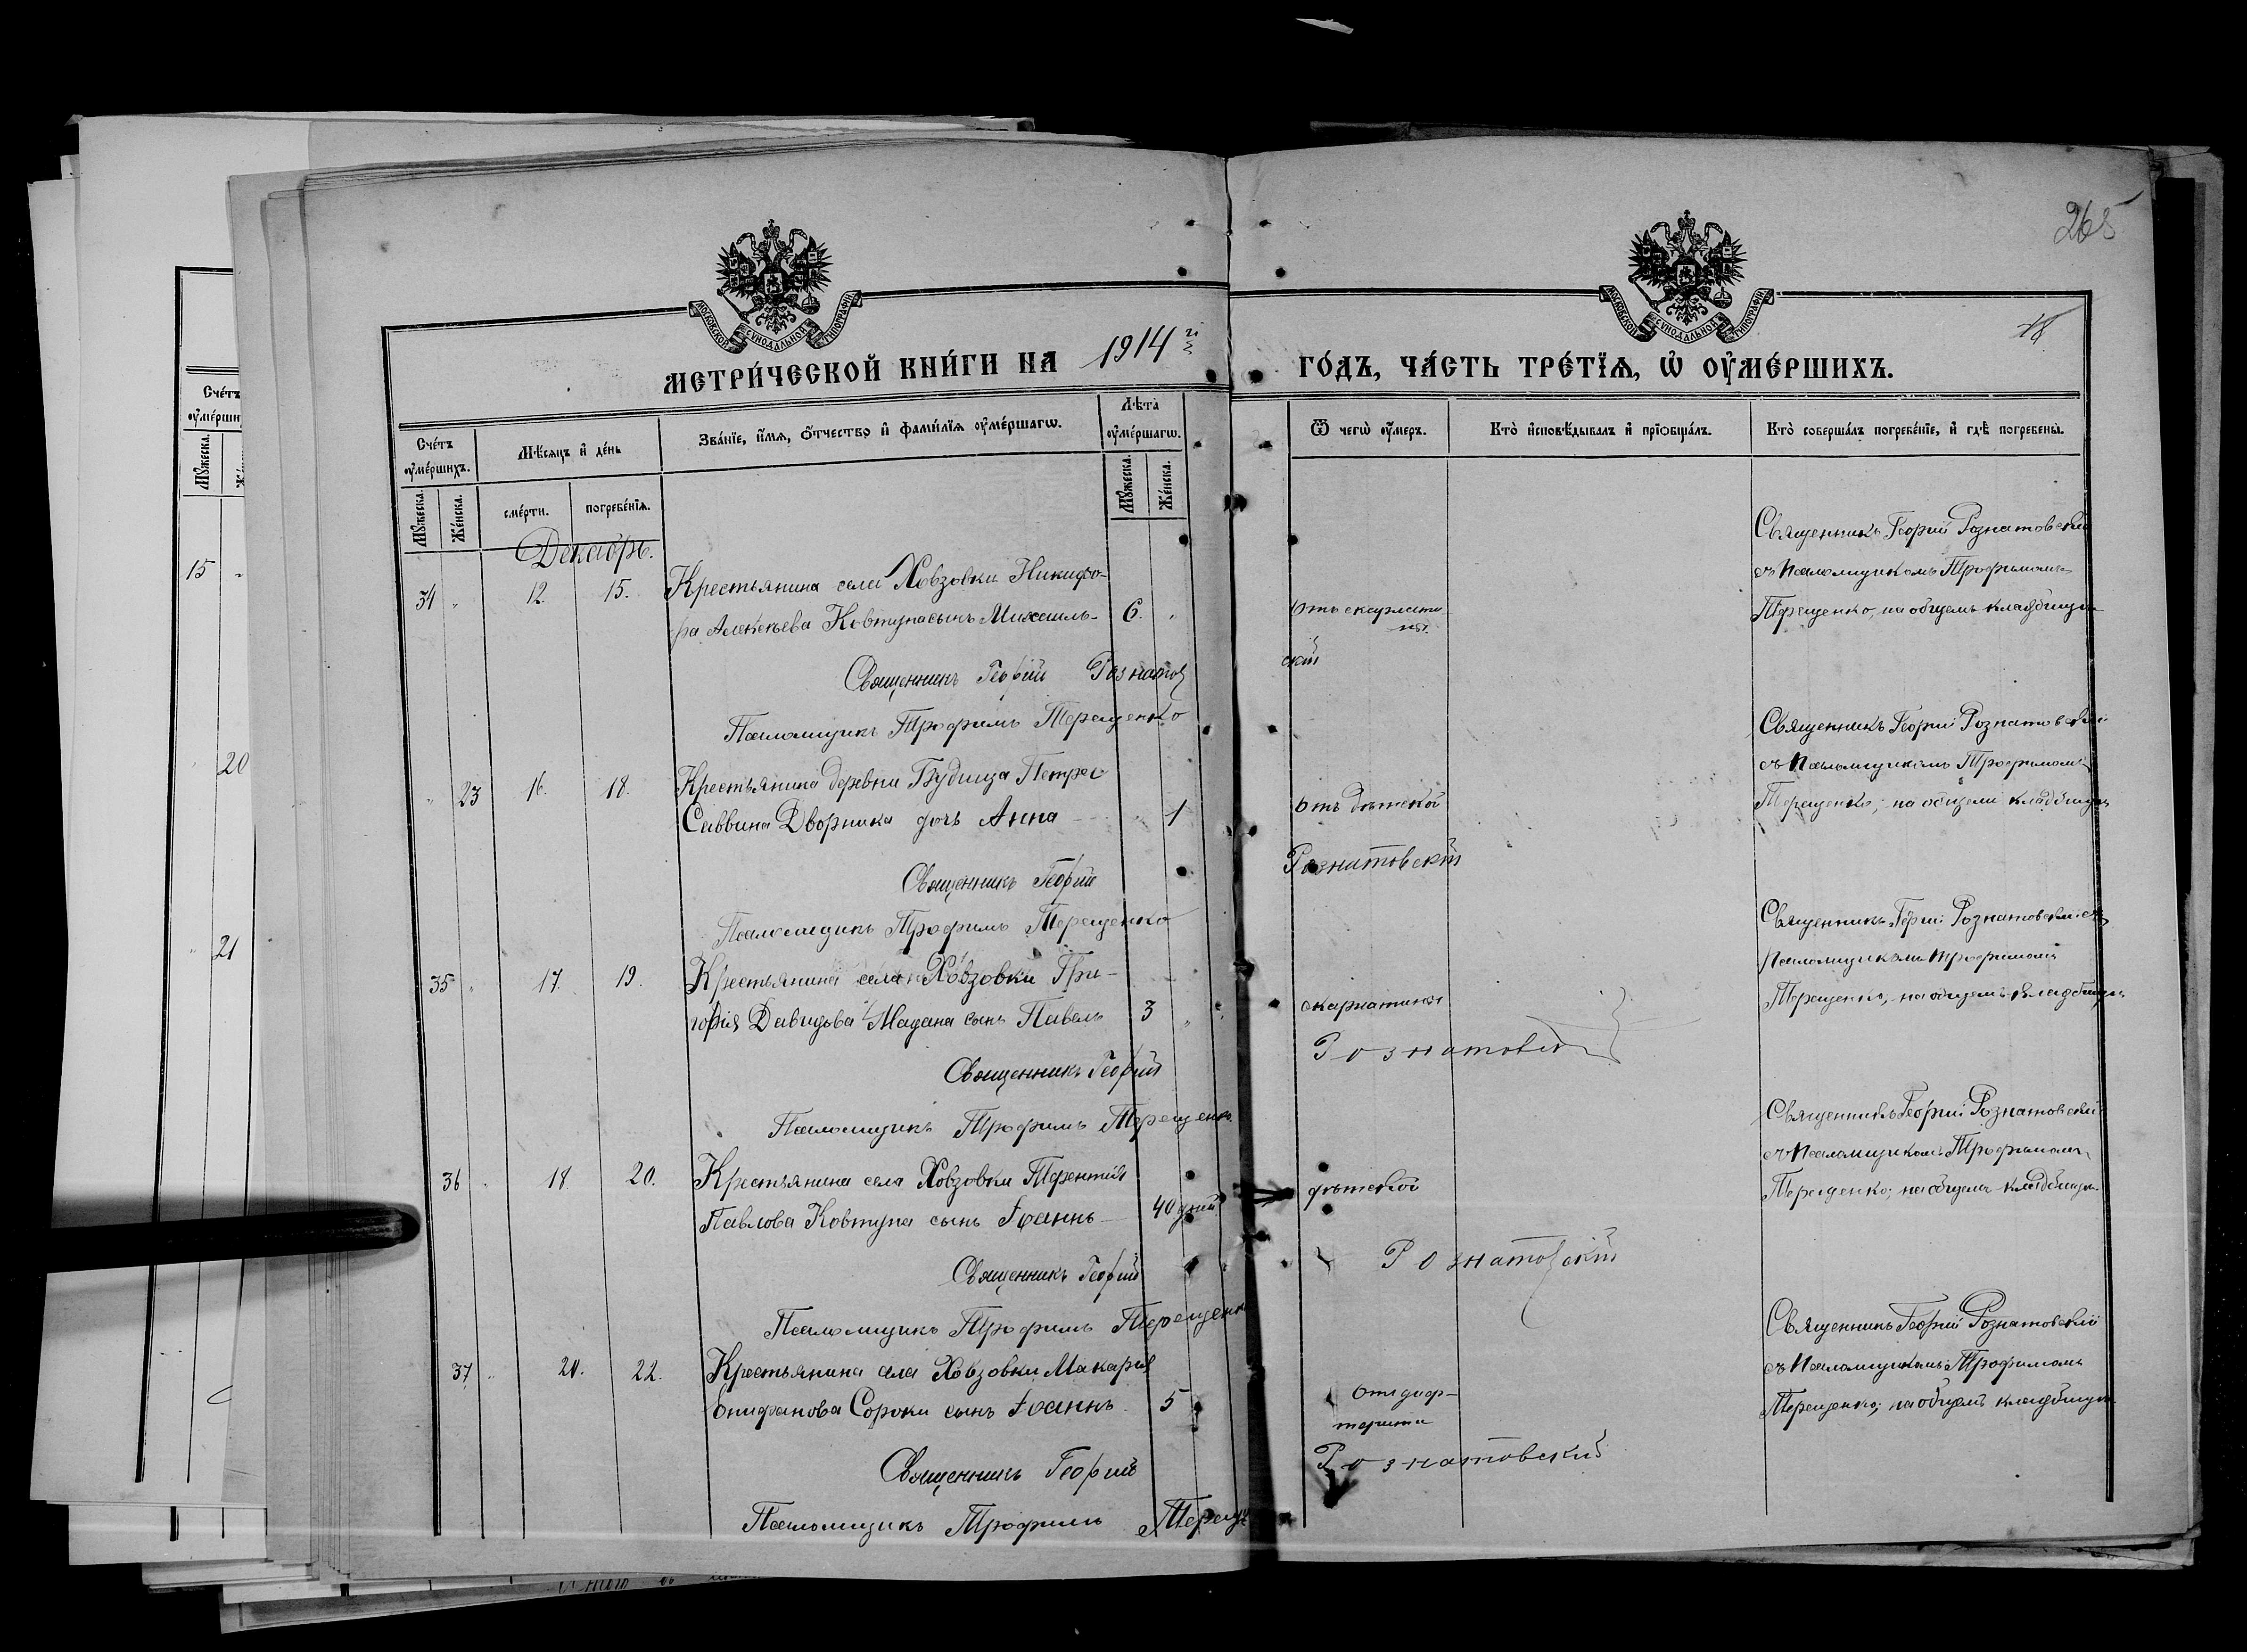 265
18
МОСКОВСКОЙ СѴНОДАЛЬНОЙ ТИПОГРАФІИ
МОСКОВСКОЙ СѴНОДАЛЬНОЙ ТИПОГРАФІИ
МЕТРИ́ЧЕСКОЙ КНИ́ГИ НА 1914 ГО́ДЪ, ЧА́СТЬ ТРЕ́ТЇѦ, Ѡ҆ ОУ҆МЕ́РШИХЪ.
Сче́тъ оу҆ме́ршихъ.
Мѣ́сѧцъ и҆ де́нь
Зва́нїе, и҆́мѧ, ѻ҆́тчество и҆ фами́лїѧ оу҆ме́ршагѡ.
Лѣ́та оу҆ме́ршагѡ.
Ѿ чегѡ̀ оу҆́меръ.
Кто̀ и҆сповѣ́дывалъ и҆ прїѡбща́лъ.
Кто̀ соверша́лъ погребе́нїе, и҆ гдѣ̀ погребены̀.
Мꙋ́жеска. Же́нска. сме́рти. погребе́нїѧ. Мꙋ́жеска. Же́нска.
Декабрь.
34 " 12. 15. Крестьянина села Ховзовки Никифо-
ра Алексѣева Ковтуна сынъ Михаилъ- 6. "
Отъ скарлати
ны.
Священникъ Георгій Рознатовскій
съ Псаломщикомъ Трофимомъ
Терещенко, на общемъ кладбищѣ
Священникъ Георгій Рознатовскій
Псаломщикъ Трофимъ Терещенко
" 23 16. 18. Крестьянина деревни Будища Петра
Саввина Дворника дочь Анна - 1
Отъ дѣтской
Священникъ Георгій Рознатовскій
съ Псаломщикомъ Трофимомъ
Терещенко, на общемъ кладбищѣ
Священникъ Георгій Рознатовскій
Псаломщикъ Трофимъ Терещенко
35 " 17. 19. Крестьянина села Ховзовки Гри-
горія Давидова Мадана сынъ Павелъ 3 "
скарлатины
Священникъ Георгій Рознатовскій съ
Псаломщикомъ Трофимомъ
Терещенко, на общемъ кладбищѣ
Священникъ Георгій Рознатовскій
Псаломщикъ Трофимъ Терещенко
36 18 20. Крестьянина села Ховзовки Терентія
Павлова Ковтуна сынъ Іоаннъ - 40 дней
дѣтской
Священникъ Георгій Рознатовскій
съ Псаломщикомъ Трофимомъ
Терещенко, на общемъ кладбищѣ
Священникъ Георгій Рознатовскій
Псаломщикъ Трофимъ Терещенко
37 " 22. Крестьянина села Ховзовки Макарія
Епифанова Сороки сынъ Іоаннъ 5
Отъ диф-
терита
Священникъ Георгій Рознатовскій
съ Псаломщикомъ Трофимомъ
Терещенко, на общемъ кладбищѣ
Священникъ Георгій Рознатовскій
Псаломщикъ Трофимъ
Сче́тъ
15 "
20
" 21